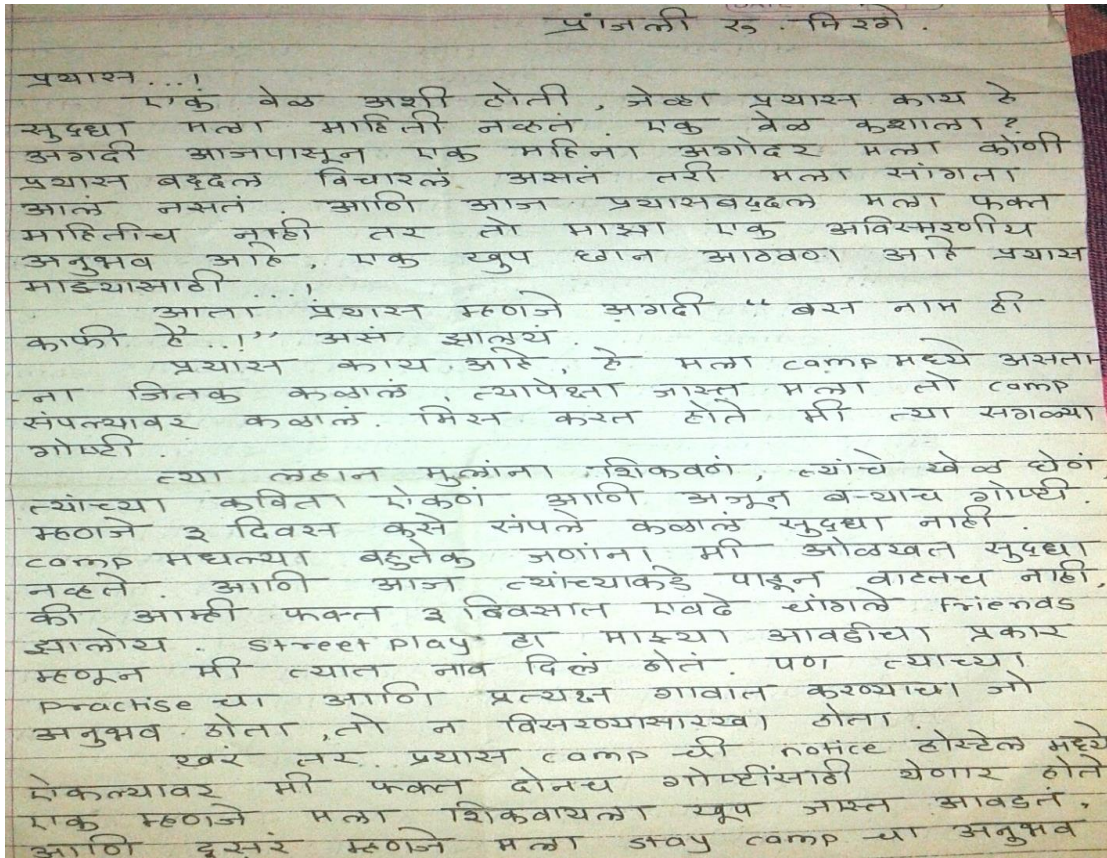 प्रांजली रु. मिरगे.
प्रयास...!
एक वेळ अशी होती, जेव्हा प्रयास काय हे
सुद्धा मला माहिती नव्हतं. एक वेळ कशाला?
अगदी आजपासून एक महिना अगोदर मला कोणी
प्रयास बद्दल विचारलं असतं तरी मला सांगता
आलं नसतं. आणि आज प्रयासबद्दल मला फक्त
माहितीच नाही तर तो माझा एक अविस्मरणीय
अनुभव आहे, एक खुप छान आठवण आहे प्रयास
माझ्यासाठी...!
आता प्रयास म्हणजे अगदी "बस नाम ही
काफी है..!" असं झालयं.
प्रयास काय आहे, हे मला camp मध्ये असता-
ना जितक कळालं, त्यापेक्षा जास्त मला तो camp
संपल्यावर कळालं. मिस करत होते मी त्या सगळ्या
गोष्टी.
त्या लहान मुलांना शिकवणं, त्यांचे खेळ घेणं,
त्यांच्या कविता ऐकणं आणि अजून बऱ्याच गोष्टी.
म्हणजे ३ दिवस कसे संपले कळालं सुद्धा नाही.
camp मधल्या बहुतेक जणांना मी ओळखत सुद्धा
नव्हते. आणि आज त्यांच्याकडे पाहून वाटतच नाही,
की आम्ही फक्त ३ दिवसात एवढे चांगले Friends
झालोय. street play हा माझ्या आवडीचा प्रकार
म्हणून मी त्यात नाव दिलं होतं. पण त्याच्या
practise चा आणि प्रत्यक्ष गावात करण्याचा जो
अनुभव होता, तो न विसरण्यासारखा होता.
खरं तर प्रयास camp ची notice होस्टेल मध्ये
ऐकल्यावर मी फक्त दोनच गोष्टींसाठी येणार होते
एक म्हणजे मला शिकवायला खूप जास्त आवडतं.
आणि दुसरं म्हणजे मला stay camp चा अनुभव